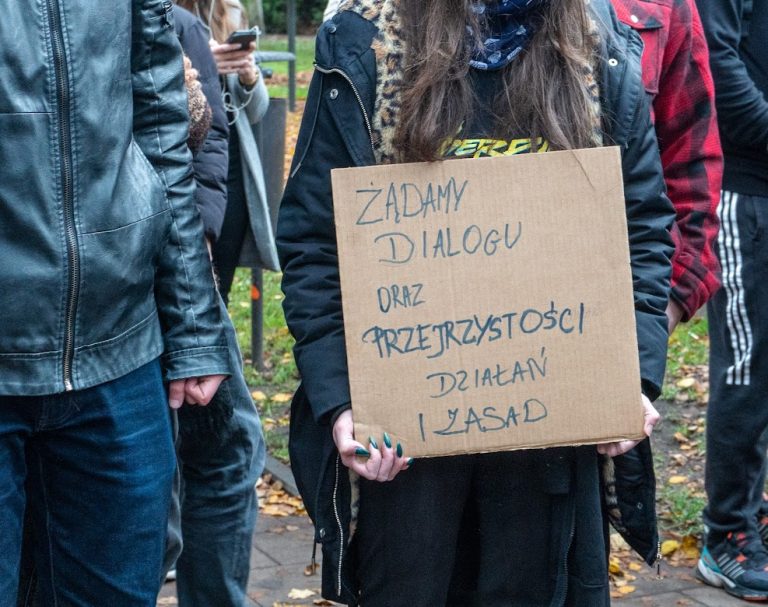 ŻĄDAMY
DIALOGU
ORAZ
PRZEJRZYSTOŚCI
DZIAŁAŃ
I ZASAD